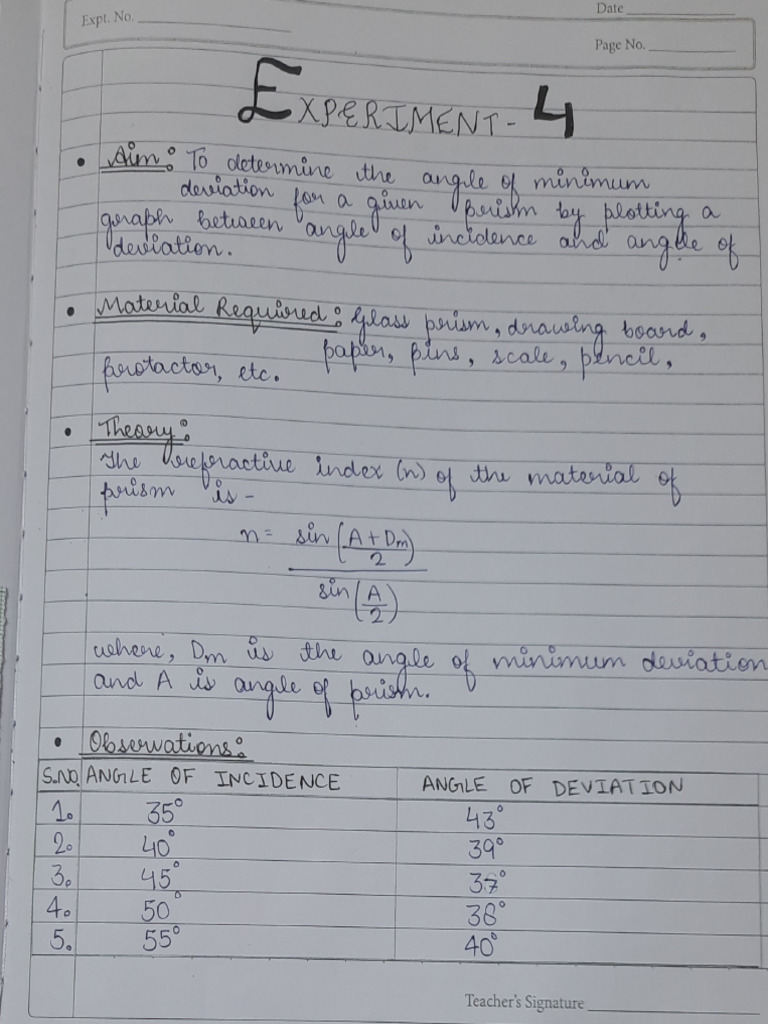 Expt. No.
Date
Page No.
EXPERIMENT - 4
• Aim: To determine the angle of minimum
deviation for a given prism by plotting a
graph between angle of incidence and angle of
deviation.
• Material Required: Glass prism, drawing board,
paper, pins, scale, pencil,
protactor, etc.
• Theory:
The refractive index (n) of the material of
prism is -
n = sin((A + Dm)/2) / sin(A/2)
where, Dm is the angle of minimum deviation
and A is angle of prism.
• Observations:
S.NO. ANGLE OF INCIDENCE ANGLE OF DEVIATION
1. 35° 43°
2. 40° 39°
3. 45° 37°
4. 50° 38°
5. 55° 40°
Teacher's Signature